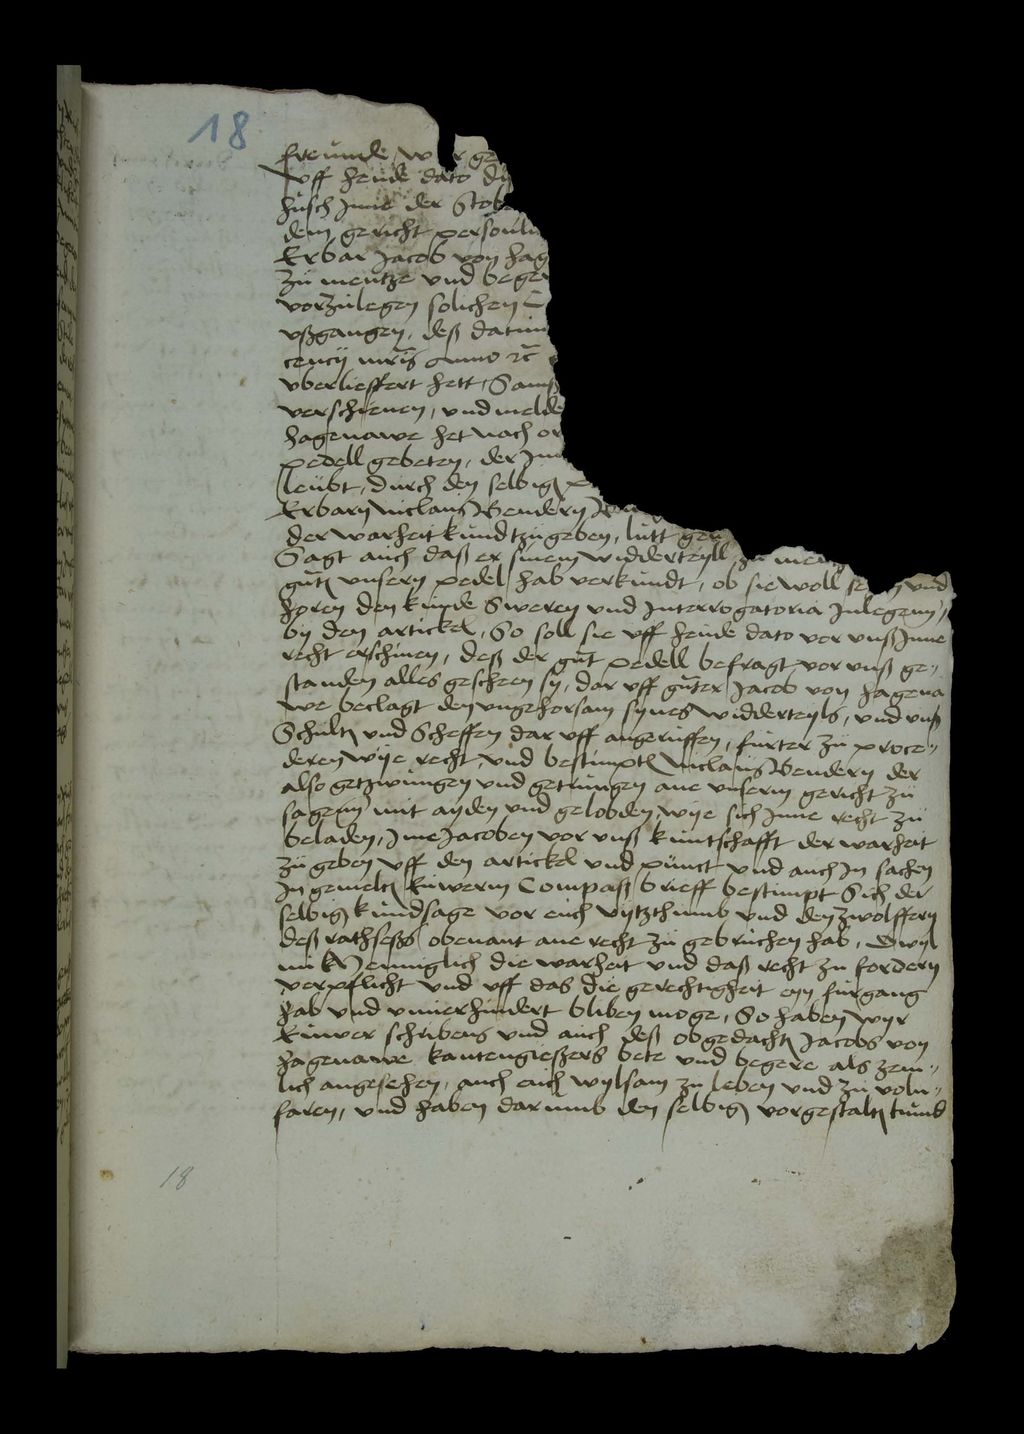 18
freunde w r ge
vff heude dato di
husch Inne der Stob
dem gericht personli
Erbar Jacob von hag
zu mentze vnd beger
vorzulegen solichen C
vßgangen, deß datum
cencij nr̄is anno ⁊c̄
vberlieffert hett, Samß
verschienen, vnd melde
hagenawe het nach or
pedell gebeten, der Inn
leubt, durch den selbigen p
Erbarn Niclaus Bendern
der warheit kundtzugeben, lutt
Sagt auch daß er sinem widderteyll zu men
guten vnsern pedel hab verkundt, ob sie woll sehen vnd
horen den kunde Sweren vnd Interrogatoria Inlegenn,
bij den artickel, So soll sie vff heude dato vor vnß Inne
recht erschinen, deß der gut pedell befragt vor vnß ge„
standen alles gescheen sy, dar vff guter Jacob von hagena
we beclagt den vngehorsam synes widderteyls, vnd vnß
Schulten vnd Scheffen dar vff angeruffen, furter zu proce„
deren wije recht, vnd bestimpten Niclaus Bendern der
also getzwungen vnd getrungen ane vnserm gericht zu
sagenn mit ayden vnd gelobden, wije sich Inne recht zu
beladen, Ime Jacoben vor vnß kuntschafft der warheit
zu geben vff den artickel vnd punct vnd auch In sachen
In gemelten Euwerm Compaß brieff bestimpt Sich der
selbigen kundsage vor euch vytzthumb vnd den zwolffern
deß rathseßs obenant ane recht zu gebruchen hab, Dwyl
nu Menniglich die warheit vnd daß recht zu fordern
verpflicht vnd vff das die gerechtigheit eyn furgang
hab vnd vnuerhindert bliben moge, So haben wyr
Euwer schribens vnd auch deß obgedachten Jacobs von
hagenawe kantengießers bete vnd begere als zem„
lich angesehen, auch euch wylsam zu leben vnd zu voln„
faren, vnd haben darumb den selbigen vorgestalten kund
18